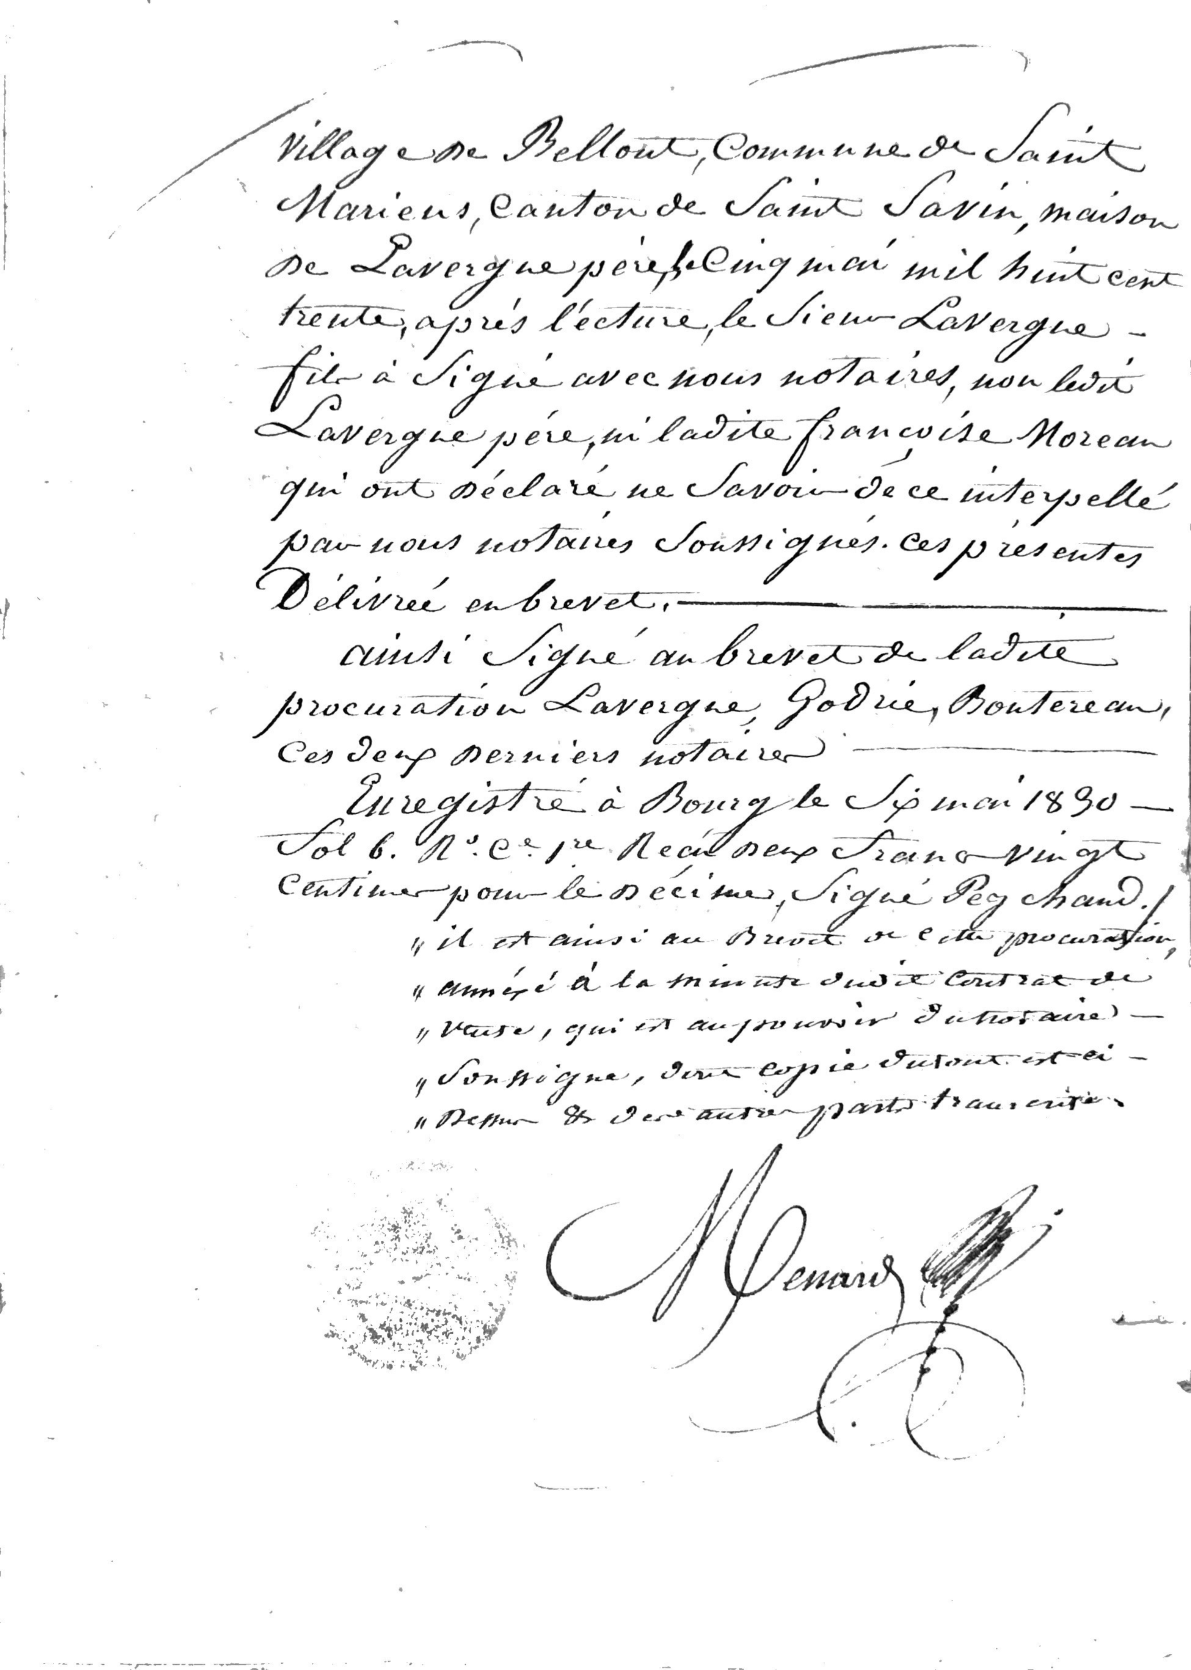 village de Bellout, Commune de Saint
Mariens, Canton de Saint Savin, maison
de Lavergne père, le Cinq mai mil huit cent
trente, aprés l'écture, le Sieur Lavergne -
fils à Signé avec nous notaires, non ledit
Lavergne pére, ni ladite françoise Moreau
qui ont déclaré ne Savoir de ce interpellé
par nous notaires Soussignés. Ces présentes
Délivreé en brevet. —
ainsi Signé au brevet de ladite
procuration Lavergne, Godrie, Boutereau,
Ces deux derniers notaires —
Enregistré à Bourg le Six mai 1830 —
Fol 6. Ro. Ce. 1re Reçu deux francs vingt
Centimes pour le décime, Signé Peychaud./
" il est ainsi au Brevet de cette procuration,
" annéxé à la minute dudit Contrat de
" Vente, qui est au pouvoir du notaire —
" Soussigné, dont copie du tout est ci -
" Dessus & des autres parts transcrite.
Menard